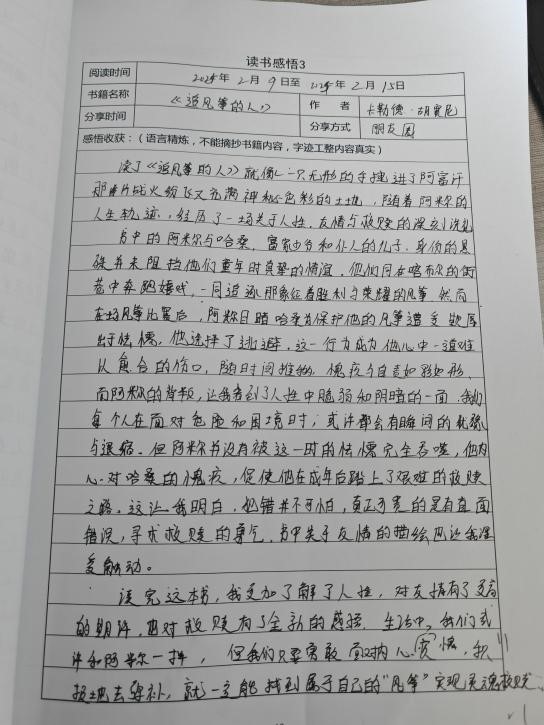 读书感悟3
阅读时间 2025年 2月 9日至 2025年 2月 15日
书籍名称 《追风筝的人》 作 者 卡勒德·胡赛尼
分享时间 分享方式 朋友圈
感悟收获:(语言精炼,不能摘抄书籍内容,字迹工整内容真实)
读了《追风筝的人》就像一只无形的手拽进了阿富汗
那片战火纷飞又充满神秘色彩的土地,随着阿米尔的
人生轨迹,经历了一场关于人性、友情与救赎的深刻洗礼
书中的阿米尔与哈桑,富家少爷和仆人的儿子,身份的悬
殊并未阻挡他们童年时真挚的情谊,他们同在喀布尔的街
巷中奔跑嬉戏,一同追逐那象征着胜利与荣耀的风筝,然而
在场风筝比赛后,阿米尔目睹哈桑为保护他的风筝遭受欺辱
出于怯懦,他选择了逃避,这一行为成为他心中一道难
以愈合的伤口,随时间推移,愧疚与自责如影随形,
而阿米尔的背叛,让我看到了人性中脆弱和阴暗的一面,我们
每个人在面对危险和困境时,或许都会有瞬间的犹豫
与退缩,但阿米尔并没有被这一时的怯懦完全吞噬,他内
心对哈桑的愧疚,促使他在成年后踏上了艰难的救赎
之路。这让我明白,犯错并不可怕,真正可贵的是有直面
错误,寻求救赎的勇气,书中关于友情的描绘也让我深
受触动。
读完这本书,我更加了解了人性,对友情有了更高
的期许,也对救赎有了全新的感悟,生活中,我们或
许和阿米尔一样, 但我们只要勇敢面对内心 懦,积
极地去弥补,就一定能找到属于自己的“风筝”实现灵魂救赎。